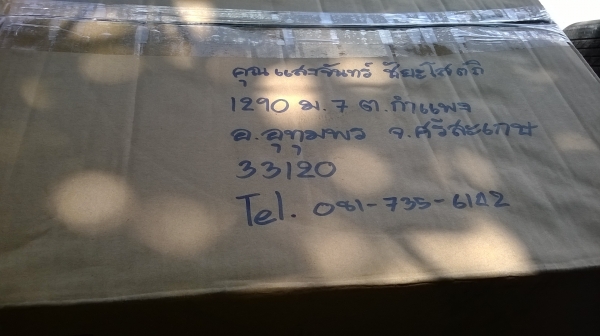 คุณ แสงจันทร์ ชัยะโสตถิ
1290 ม.7 ต.กำแพง
อ.อุทุมพร จ.ศรีสะเกษ
33120
Tel. 081-735-6142